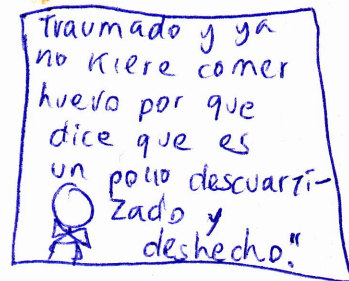 Traumado y ya
no kiere comer
huevo por que
dice que es
un pollo descuarti-
zado y
deshecho."